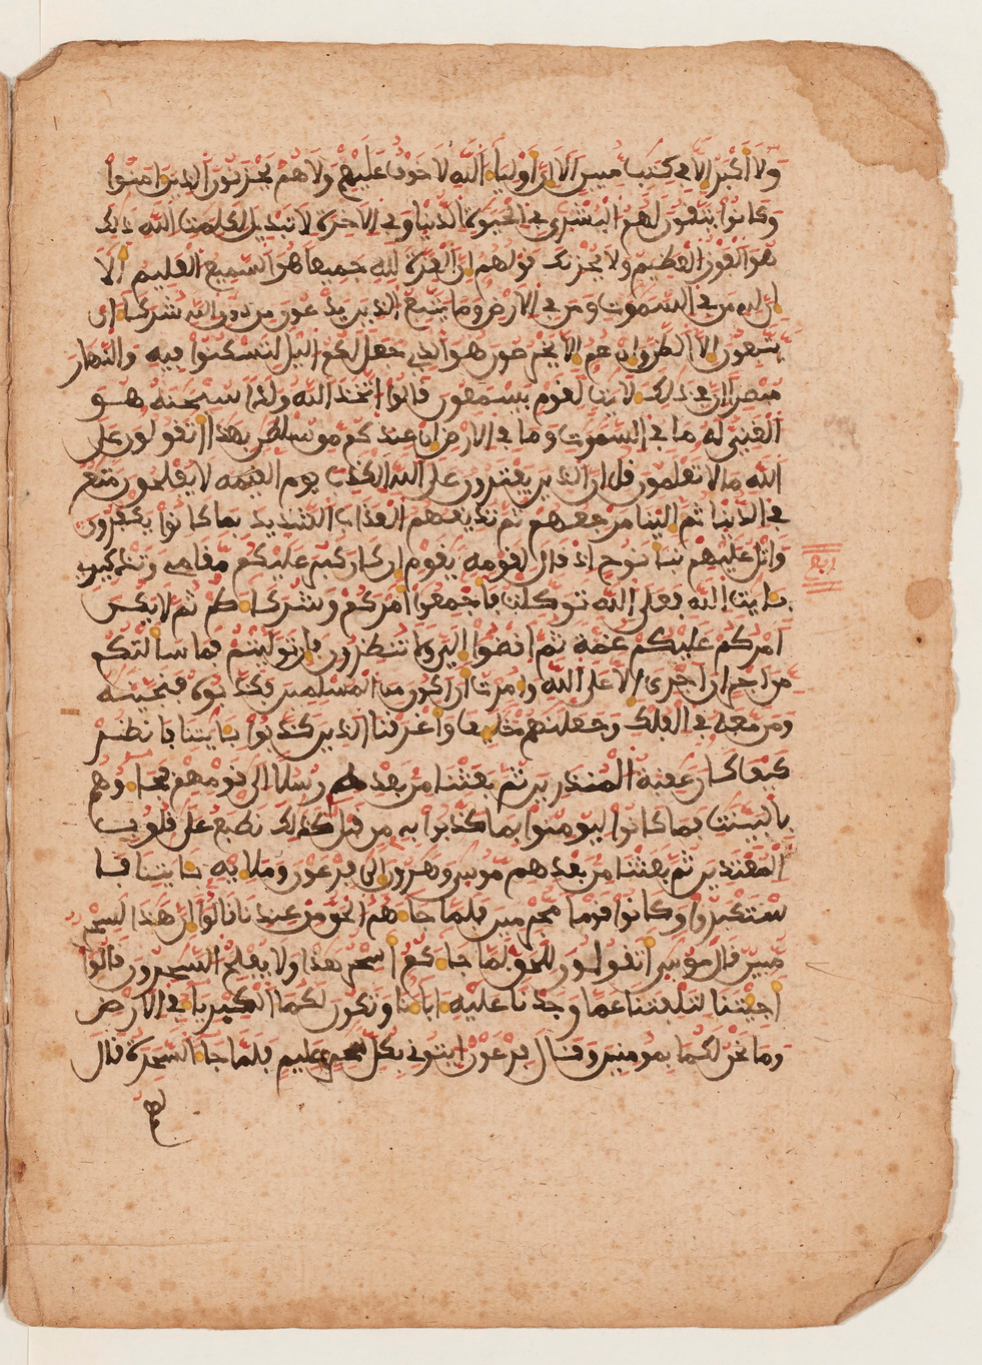 ولا أكبر الا في كتب مبين الا ان اولياء الله لا خوف عليهم ولا هم يحزنون الذين امنوا
وكانوا يتقون لهم البشرى في الحيوة الدنيا وفي الاخرة لا تبديل لكلمت الله ذلك
هو الفوز العظيم ولا يحزنك قولهم ان العزة لله جميعا هو السميع العليم الا
ان لله من في السموت ومن في الارض وما يتبع الذين يدعون من دون الله شركاء ان
يتبعون الا الظن وان هم الا يخرصون هو الذي جعل لكم اليل لتسكنوا فيه والنهار
مبصرا ان في ذلك لايت لقوم يسمعون قالوا اتخذ الله ولدا سبحنه هو
الغني له ما في السموت وما في الارض ان عندكم من سلطن بهذا اتقولون على
الله ما لا تعلمون قل ان الذين يفترون على الله الكذب يوم القيمه لا يفلحون متع
في الدنيا ثم الينا مرجعهم ثم نذيقهم العذاب الشديد بما كانوا يكفرون
واتل عليهم نبا نوح اذ قال لقومه يقوم ان كان كبر عليكم مقامي وتذكيري
بايت الله فعلى الله توكلت فاجمعوا امركم وشركاءكم ثم لا يكن
امركم عليكم غمة ثم اقضوا الي ولا تنظرون فان توليتم فما سالتكم
من اجر ان اجري الا على الله وامرت ان اكون من المسلمين فكذبوه فنجينه
ومن معه في الفلك وجعلنهم خليف واغرقنا الذين كذبوا بايتنا فانظر
كيف كان عقبة المنذرين ثم بعثنا من بعده رسلا الى قومهم فجاءوهم
بالبينت فما كانوا ليومنوا بما كذبوا به من قبل كذلك نطبع على قلوب
المعتدين ثم بعثنا من بعدهم موسى وهرون الى فرعون وملايه بايتنا فا
ستكبروا وكانوا قوما مجرمين فلما جاءهم الحق من عندنا قالوا ان هذا لسحر
مبين قال موسى اتقولون للحق لما جاءكم اسحر هذا ولا يفلح السحرون قالوا
اجيتنا لتلفتنا عما وجدنا عليه اباءنا وتكون لكما الكبرياء في الارض
وما نحن لكما بمومنين وقال فرعون ايتوني بكل سحر عليم فلما جاء السحرة قال
لهم
ربع